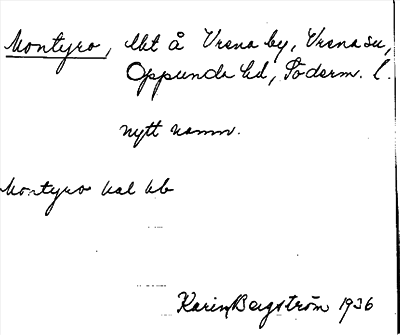 Montyro, Lht å Vrena by, Vrena sn,
Oppunda hd, Söderm. l.
nytt namn.
Montyro kal hb
Karin Bergström 1936